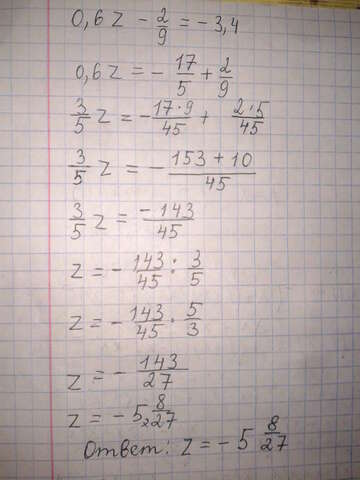 0,6 z - 2/9 = - 3,4
0,6 z = - 17/5 + 2/9
3/5 z = - 17·9/45 + 2·5/45
3/5 z = - 153 + 10/45
3/5 z = - 143/45
z = - 143/45 : 3/5
z = - 143/45 · 5/3
z = - 143/27
z = - 5 8/27
Ответ: z = - 5 8/27